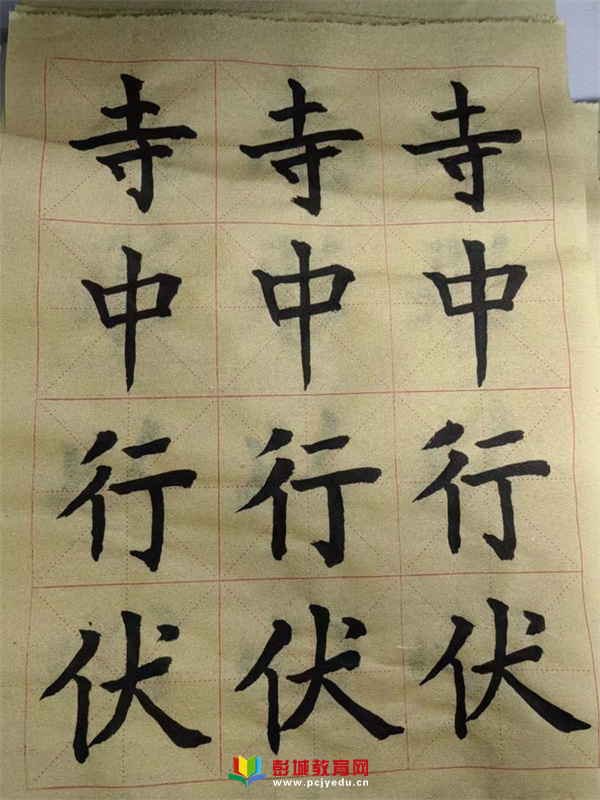 寺寺寺
中中中
行行行
伏伏伏
彭城教育网
www.pcjyedu.cn